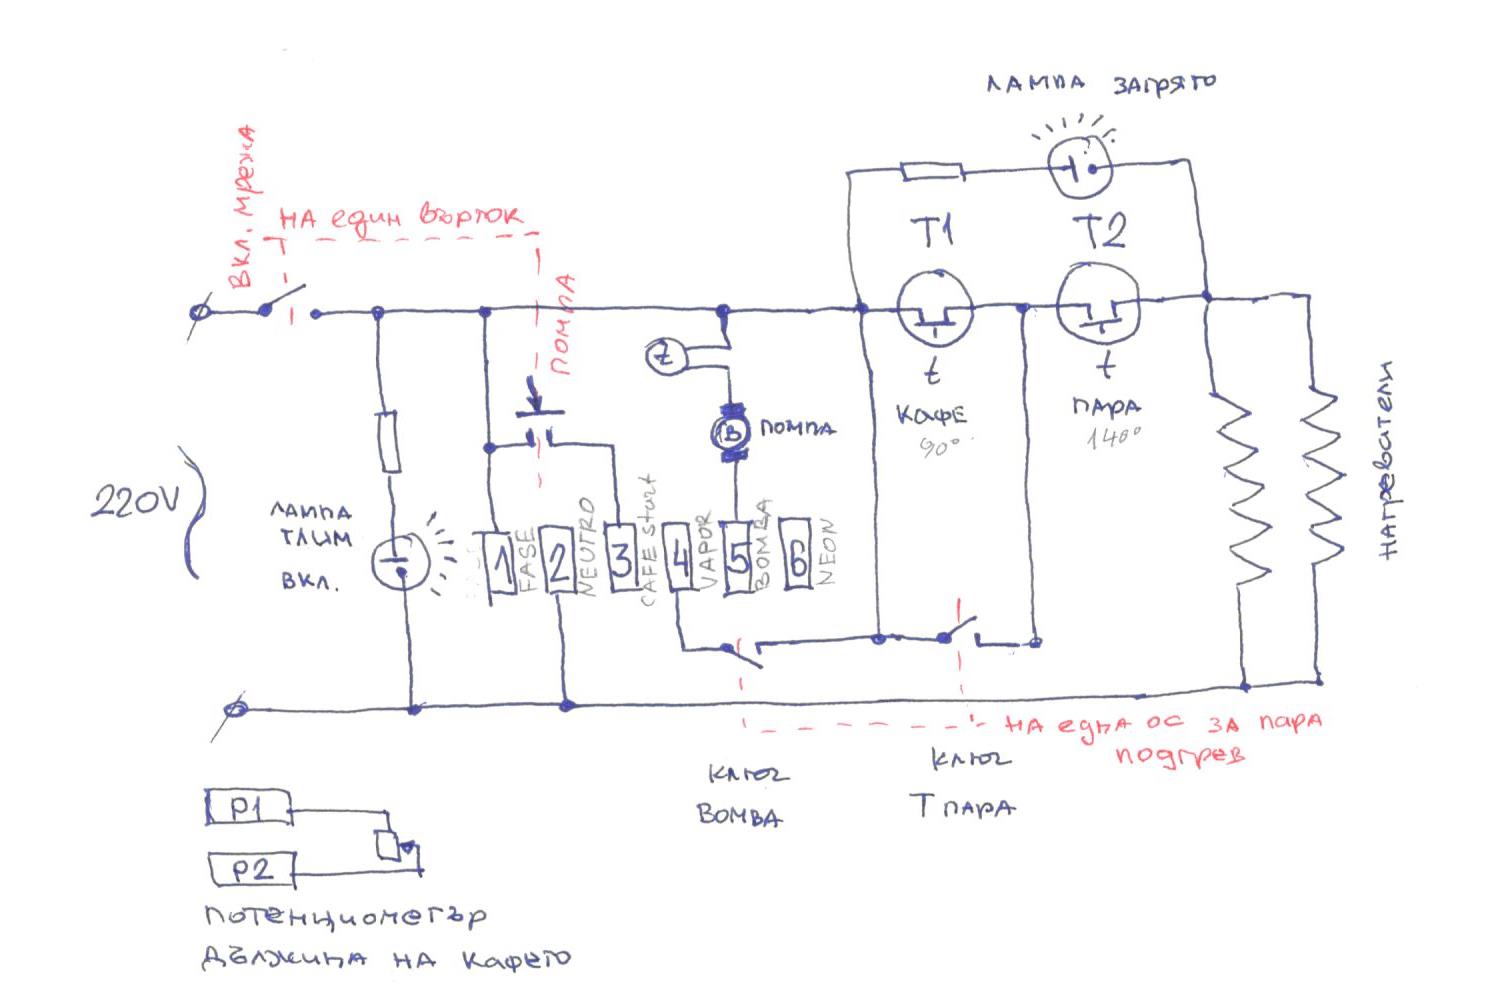 ЛАМПА ЗАГРЯТО
ВКЛ. МРЕЖА
НА един върток
ПОМПА
T1
T2
t
t
КАФЕ
90°
ПАРА
140°
ПОМПА
НАГРЕВАТЕЛИ
220V
ЛАМПА
ТЛИМ
ВКЛ.
1
FASE
2
NEUTRO
3
CAFE start
4
VAPOR
5
BOMBA
6
NEON
НА една ос за пара
подгрев
КЛЮЧ
BOMBA
КЛЮЧ
T ПАРА
P1
P2
ПОТЕНЦИОМЕТЪР
ДЪЛЖИНА НА КАФЕТО